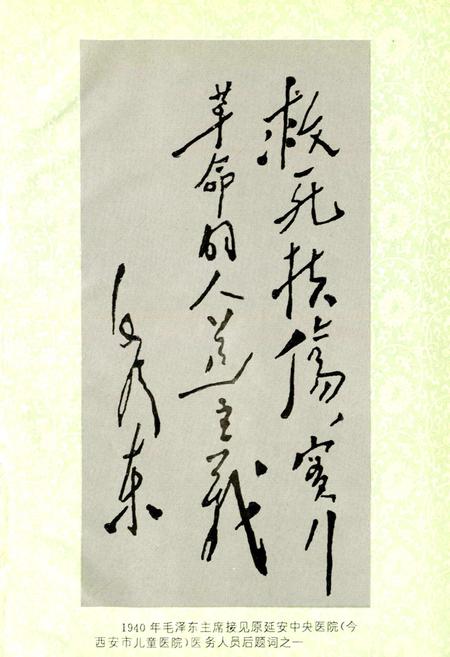 救死扶伤、实行
革命的人道主义
毛泽东
1940年毛泽东主席接见原延安中央医院(今
西安市儿童医院)医务人员后题词之一